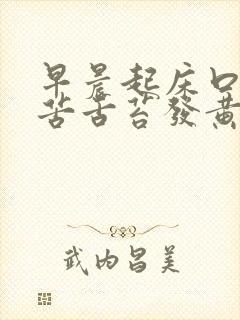 早晨起床口
苦舌苔發黃
武内昌美